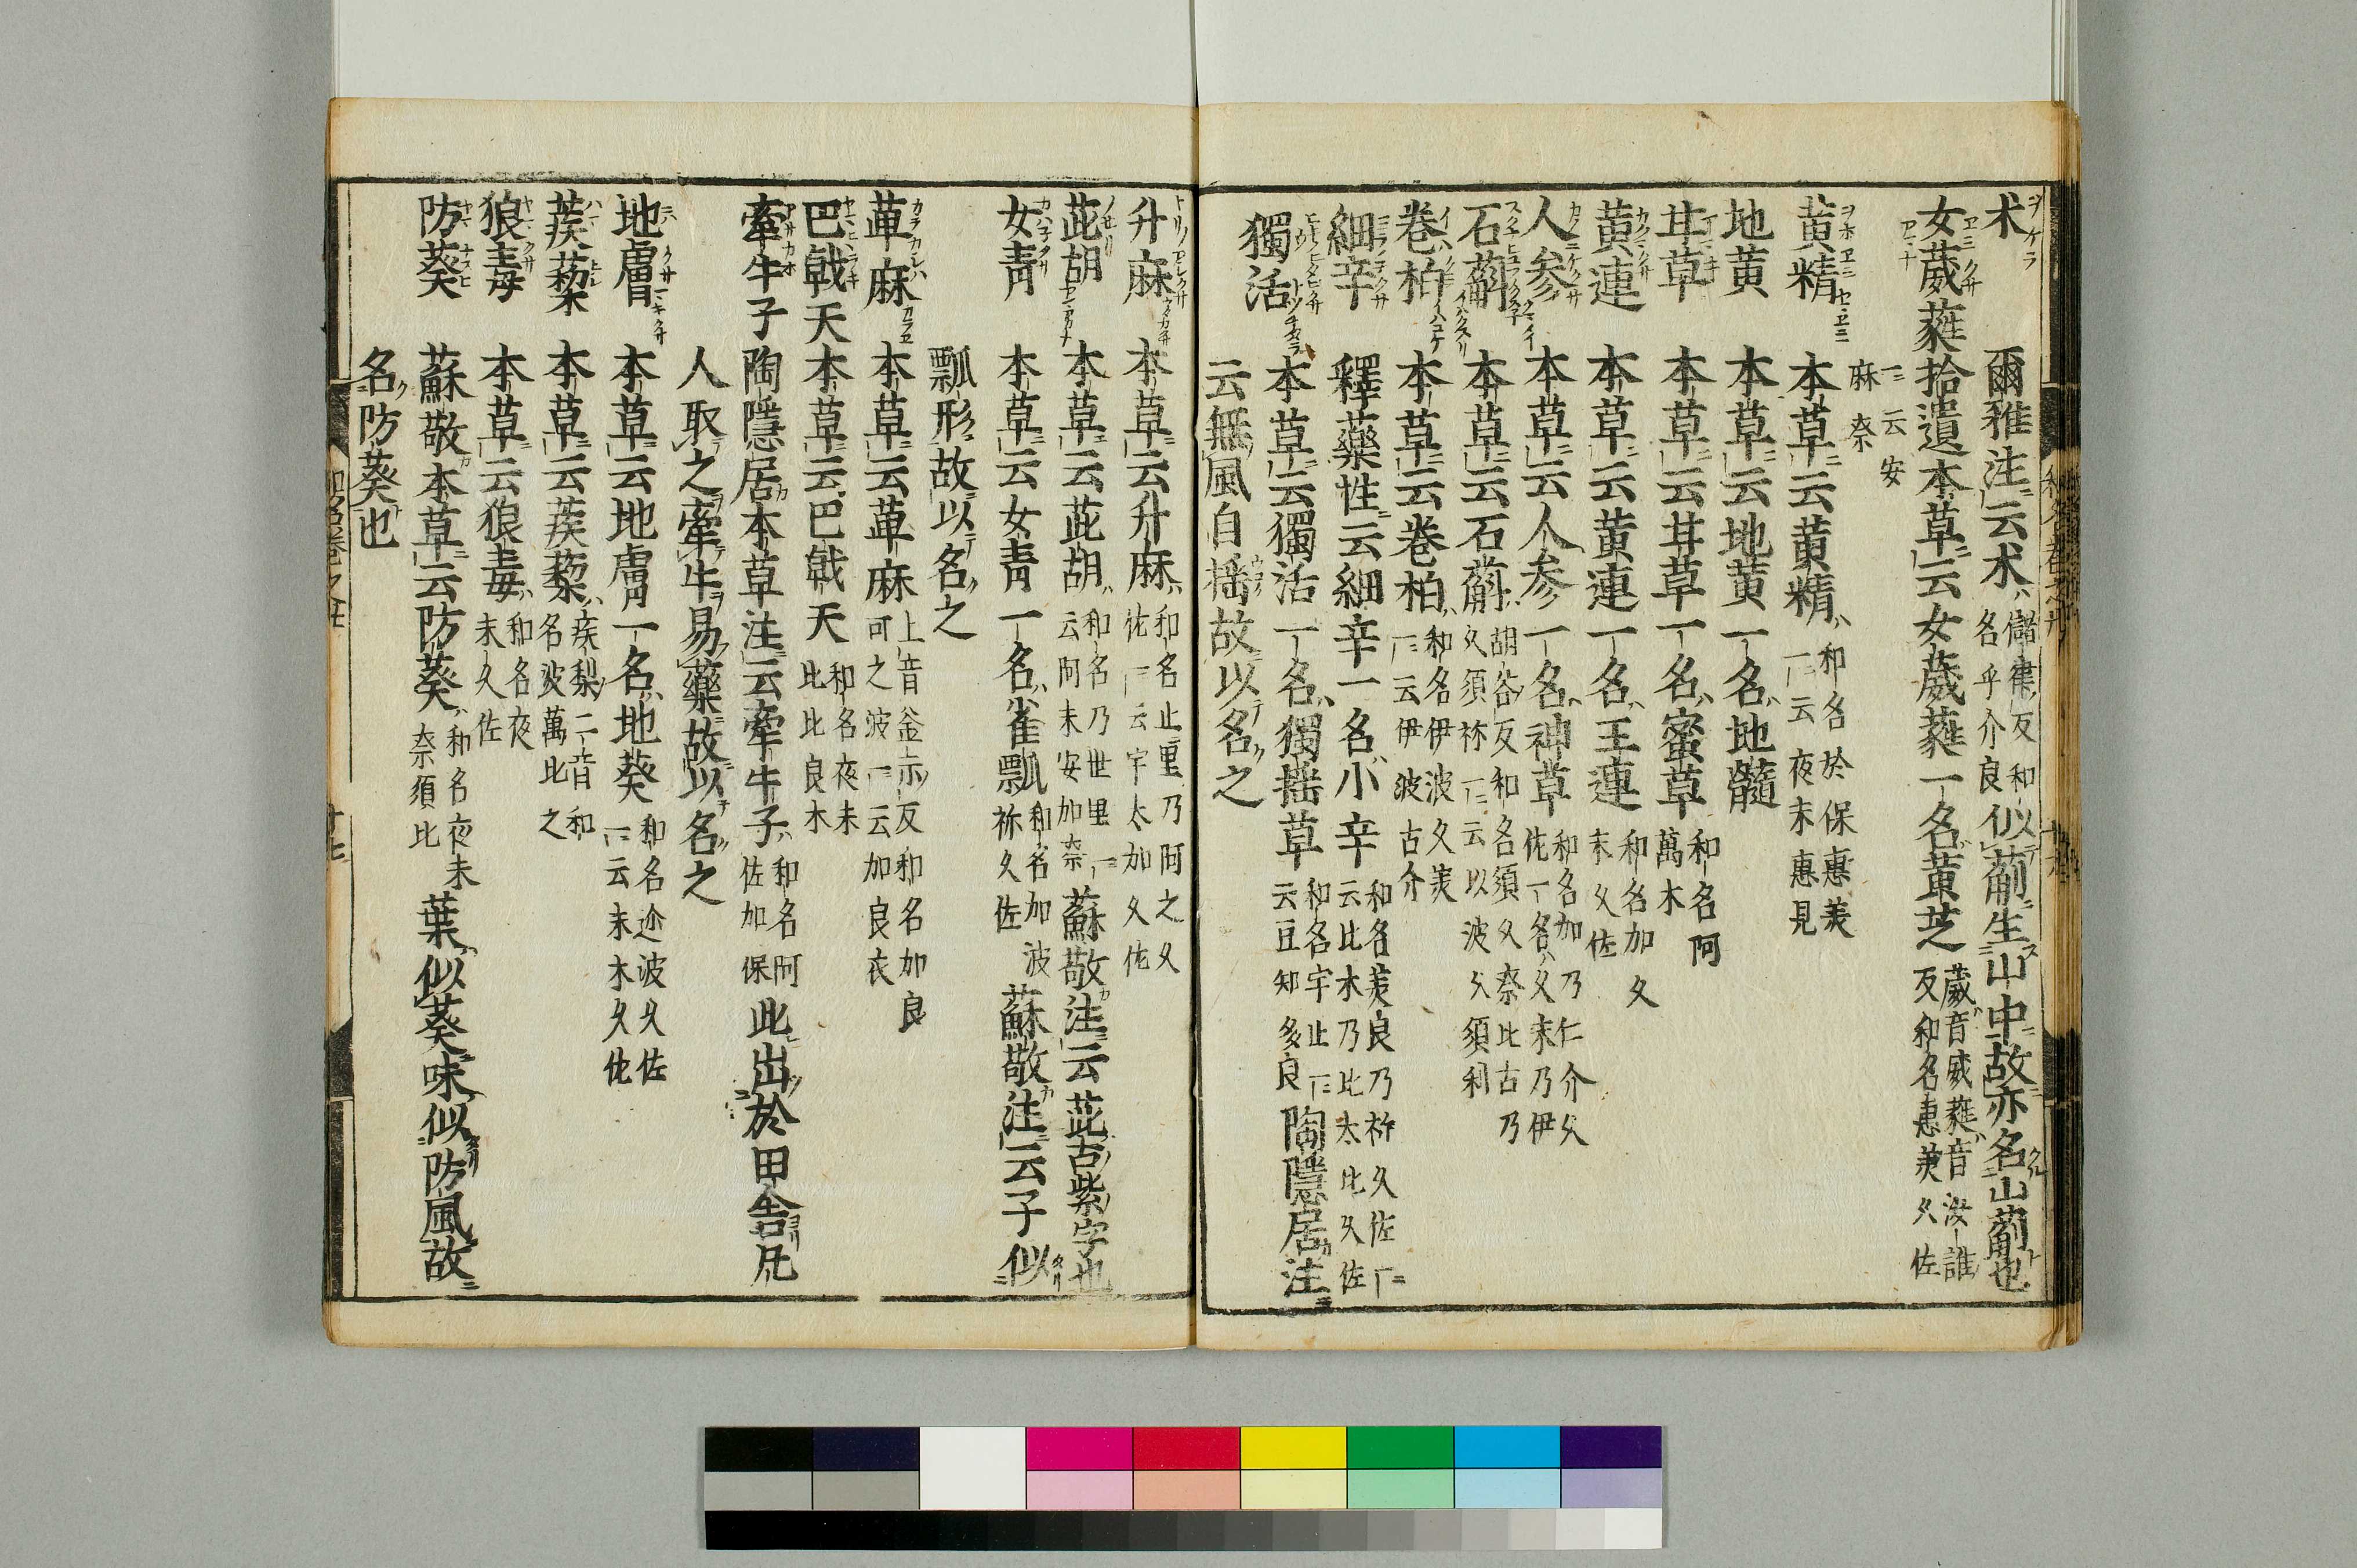 朮 爾雅注云朮儲聿反和名乎介良似薊生山中故亦名山薊也
女葳蕤拾遺本草云女葳蕤一名黄芝葳音威蕤音汝誰反和名惠美久佐
一云安麻奈
黄精 本草云黄精和名於保惠美一云夜末惠見
地黄 本草云地黄一名地髓
甘草 本草云甘草一名蜜草和名阿萬木
黄連 本草云黄連一名王連和名加久末久佐
人参 本草云人参一名神草和名加乃仁介久佐一名久末乃伊
石薢 本草云石薢胡谷反和名須久奈比古乃久須祢一云以波久須利
巻柏 本草云巻柏和名伊波久美一云伊波古介
細辛 釋藥性云細辛一名小辛和名美良乃祢久佐一云比木乃比太比久佐
獨活 本草云獨活一名獨揺草和名宇止一云豆知多良陶隱居注
云無風自揺故以名之
升麻 本草云升麻和名止里乃阿之久佐一云宇太加久佐
茈胡 本草云茈胡和名乃世里一云阿末安加奈蘇敬注云茈古紫字也
女青 本草云女青一名雀瓢和名加波祢久佐蘇敬注云子似
瓢形故以名之
萆麻 本草云萆麻上音釜亦反和名加良可之波一云加良衣
巴戟天 本草云巴戟天和名夜末比比良木
牽牛子 陶隱居本草注云牽牛子和名阿佐加保此出於田舎凡
人取之牽牛易藥故以名之
地膚 本草云地膚一名地葵和名迩波久佐一云末木久佐
蒺蔾 本草云蒺蔾疾梨二音和名波萬比之
狼毒 本草云狼毒和名夜末久佐
防葵 蘇敬本草云防葵和名夜末奈須比葉似葵味似防風故
名防葵也